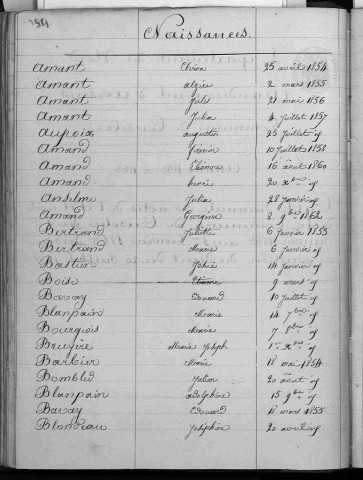 Naissances.
Amant Elvina 25 avril 1854
Amant alzire 2 mars 1855
Amant Jules 21 mai 1856
Amant Julia 4 juillet 1857
Aupoix augustin 25 juillet if
Amand Firmin 10 juillet 1858
Amand Etienne 16 août 1860
Amand 20 Xbre if
Anselme Julia 28 janvier if
Amand Georgina 8 9bre 1862
Bertrand Juliette 6 février 1853
Bertrand Marie 6 janvier if
Bastien Julie 14 janvier if
Bois Etienne 9 mars if
Bavay Edouard 10 juillet if
Blanpain Marie 14 7bre if
Bourgois Marie 7 if
Bruyère Marie Joseph 1er Xbre if
Barbier Marie 18 mai 1854
Bombled Julien 20 août if
Blanpain adolphine 15 9bre if
Bavay Edouard 18 mars 1855
Blondeau Joséphine 20 avril if